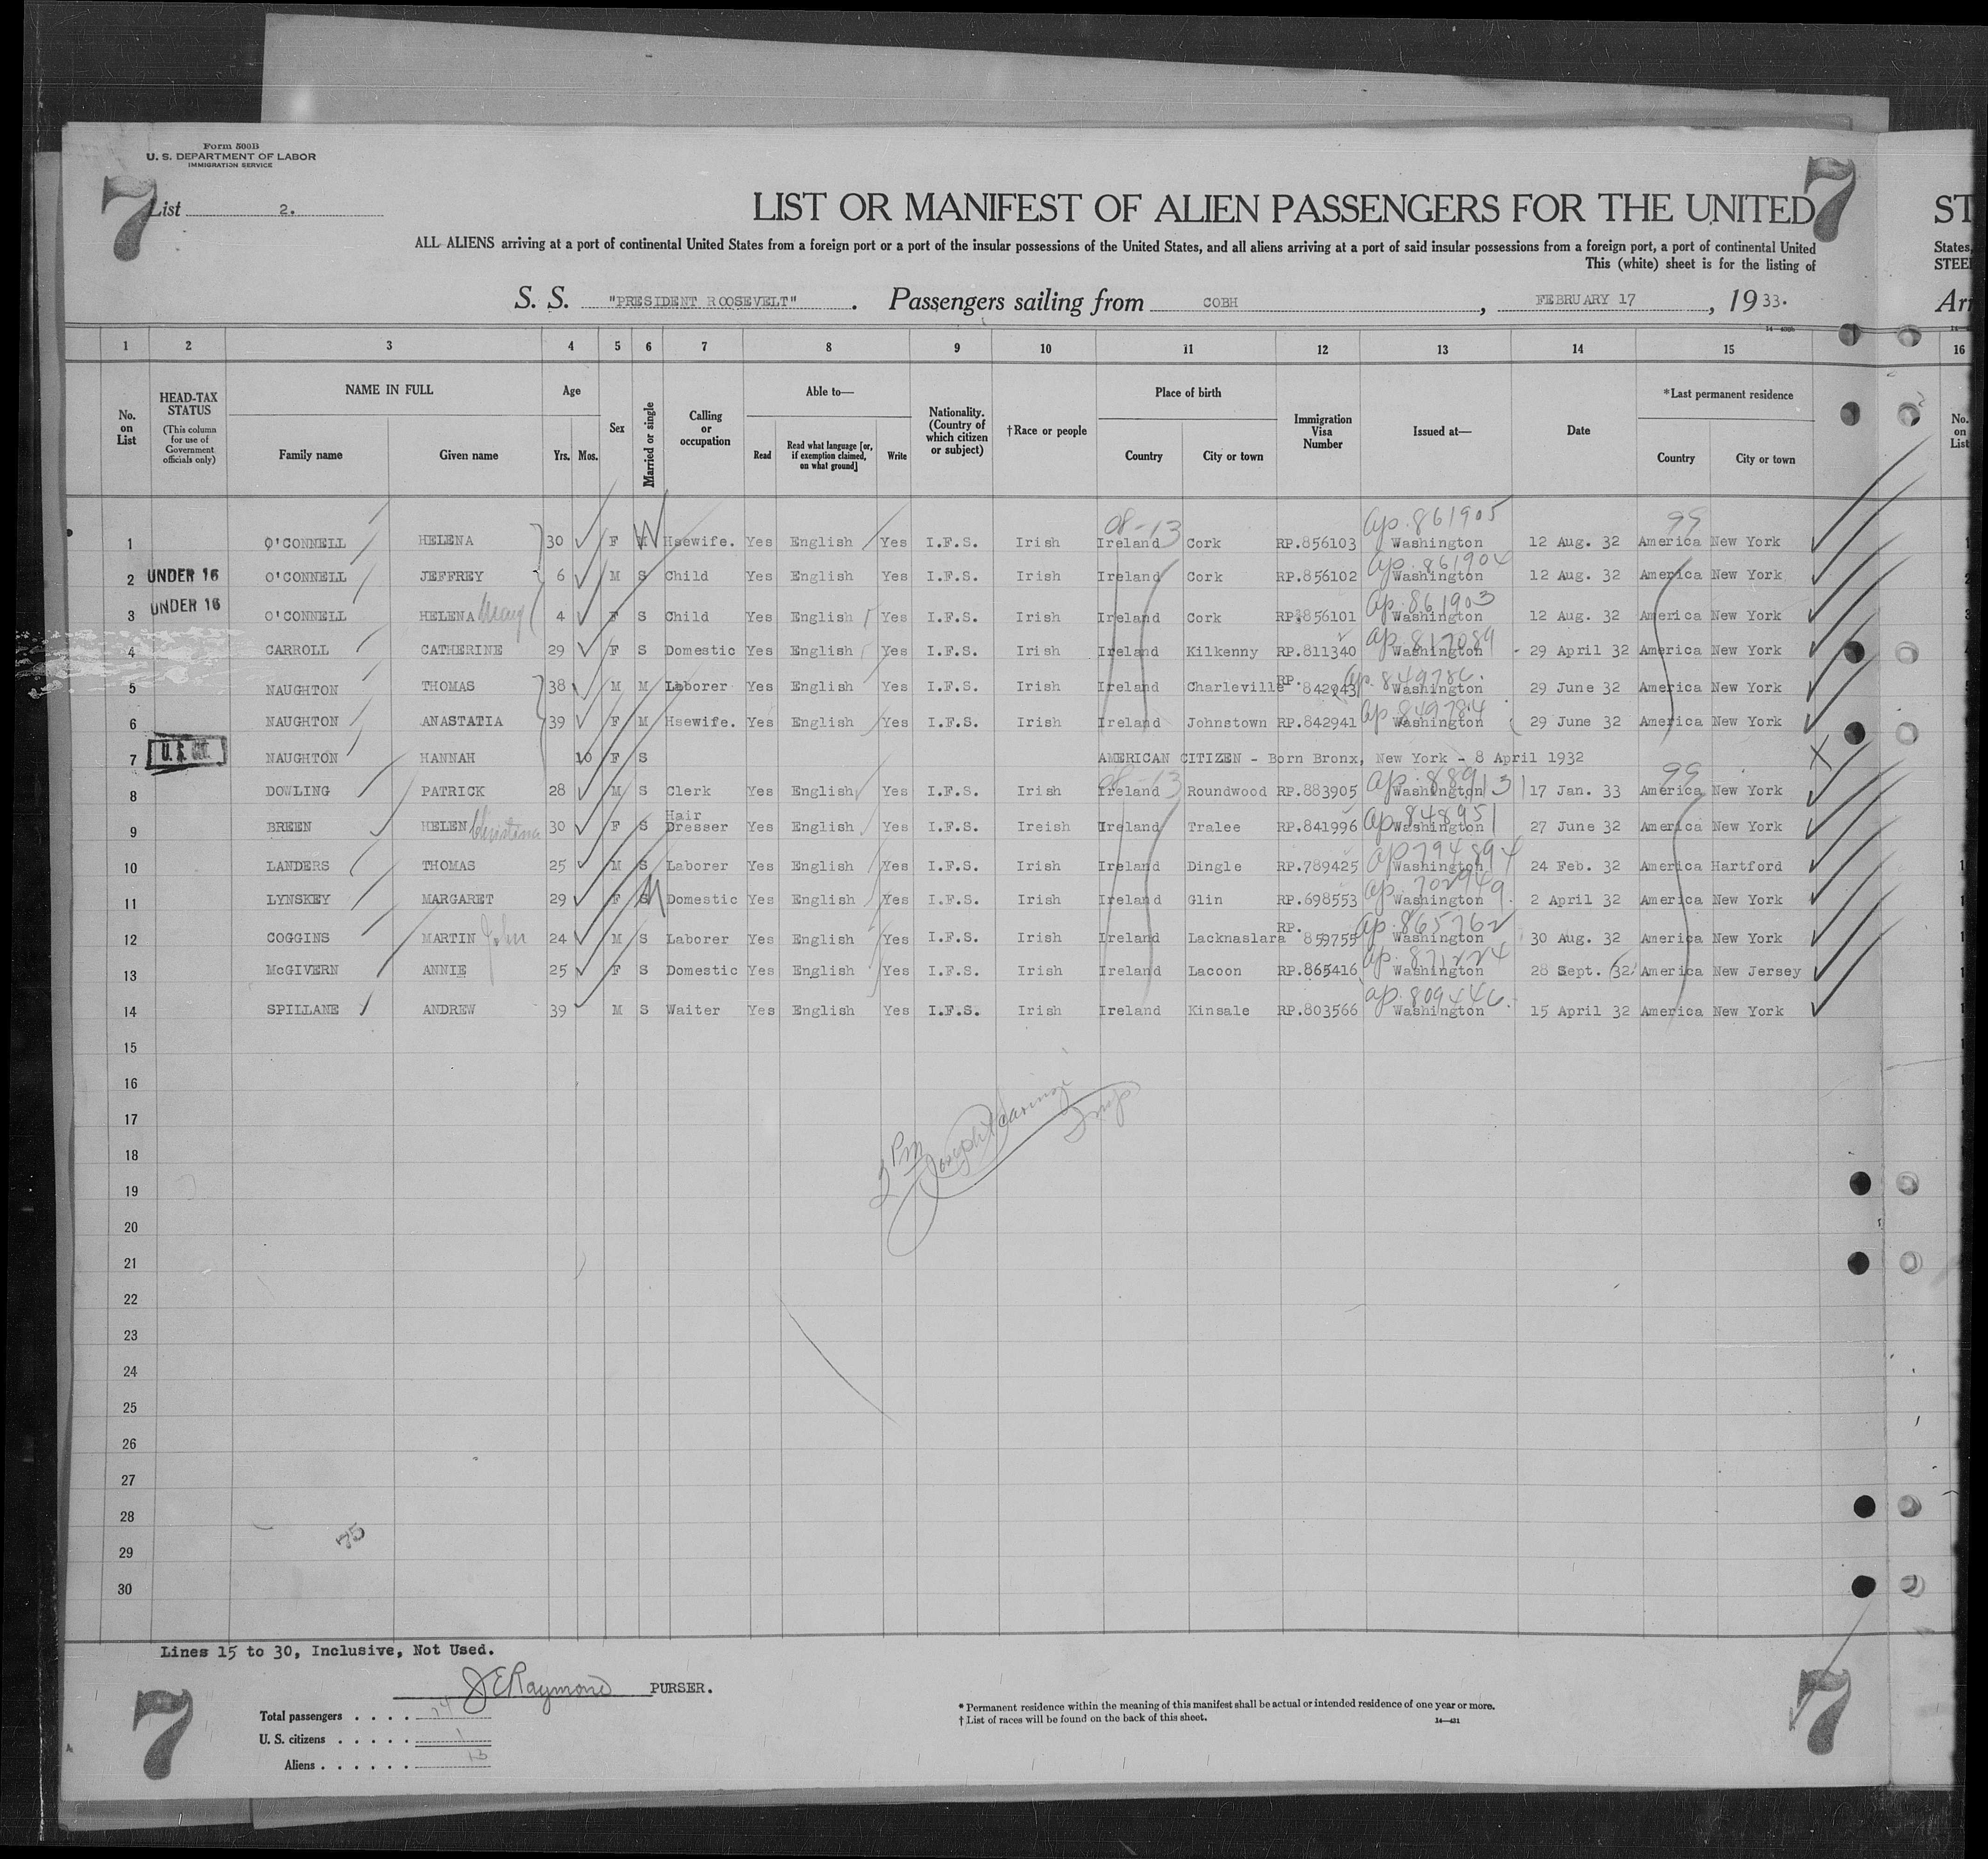 Form 500B
U. S. DEPARTMENT OF LABOR
IMMIGRATION SERVICE
7 7
List 2.
LIST OR MANIFEST OF ALIEN PASSENGERS FOR THE UNITED ST
ALL ALIENS arriving at a port of continental United States from a foreign port or a port of the insular possessions of the United States, and all aliens arriving at a port of said insular possessions from a foreign port, a port of continental United States,
This (white) sheet is for the listing of STEE
S. S. "PRESIDENT ROOSEVELT". Passengers sailing from COBH, FEBRUARY 17, 1933. Arr
1 2 3 4 5 6 7 8 9 10 11 12 13 14 15 16
No. on List
HEAD-TAX STATUS (This column for use of Government officials only)
NAME IN FULL
Family name Given name
Age
Yrs. Mos.
Sex
Married or single
Calling or occupation
Able to—
Read Read what language [or, if exemption claimed, on what ground] Write
Nationality. (Country of which citizen or subject)
†Race or people
Place of birth
Country City or town
Immigration Visa Number
Issued at—
Date
*Last permanent residence
Country City or town
No. on List
08-13 ap. 861905 99
1 O'CONNELL HELENA 30 F M W Hsewife. Yes English Yes I.F.S. Irish Ireland Cork RP.856103 Washington 12 Aug. 32 America New York
ap. 861904
2 UNDER 16 O'CONNELL JEFFREY 6 M S Child Yes English Yes I.F.S. Irish Ireland Cork RP.856102 Washington 12 Aug. 32 America New York
ap. 861903
3 UNDER 16 O'CONNELL HELENA Mary 4 F S Child Yes English Yes I.F.S. Irish Ireland Cork RP.856101 Washington 12 Aug. 32 America New York
ap. 817089
4 CARROLL CATHERINE 29 F S Domestic Yes English Yes I.F.S. Irish Ireland Kilkenny RP.811340 Washington 29 April 32 America New York
ap. 849786.
5 NAUGHTON THOMAS 38 M M Laborer Yes English Yes I.F.S. Irish Ireland Charleville RP. 842943 Washington 29 June 32 America New York
ap. 849784
6 NAUGHTON ANASTATIA 39 F M Hsewife. Yes English Yes I.F.S. Irish Ireland Johnstown RP.842941 Washington 29 June 32 America New York
7 U. S. CIT. NAUGHTON HANNAH 10 F S AMERICAN CITIZEN - Born Bronx, New York - 8 April 1932 X
08-13 ap. 889131 99
8 DOWLING PATRICK 28 M S Clerk Yes English Yes I.F.S. Irish Ireland Roundwood RP.883905 Washington 17 Jan. 33 America New York
ap. 848951
9 BREEN HELEN Christina 30 F S Hair Dresser Yes English Yes I.F.S. Ireish Ireland Tralee RP.841996 Washington 27 June 32 America New York
ap 794894
10 LANDERS THOMAS 25 M S Laborer Yes English Yes I.F.S. Irish Ireland Dingle RP.789425 Washington 24 Feb. 32 America Hartford
ap. 702949.
11 LYNSKEY MARGARET 29 F S M Domestic Yes English Yes I.F.S. Irish Ireland Glin RP.698553 Washington 2 April 32 America New York
ap. 865762
12 COGGINS MARTIN John 24 M S Laborer Yes English Yes I.F.S. Irish Ireland Lacknaslara RP. 859755 Washington 30 Aug. 32 America New York
ap. 871224
13 McGIVERN ANNIE 25 F S Domestic Yes English Yes I.F.S. Irish Ireland Lacoon RP.865416 Washington 28 Sept. 32 America New Jersey
ap. 809446.
14 SPILLANE ANDREW 39 M S Waiter Yes English Yes I.F.S. Irish Ireland Kinsale RP.803566 Washington 15 April 32 America New York
15
16
17
18
2 PM Joseph Insp
19
20
21
22
23
24
25
26
27
28
29
30
Lines 15 to 30, Inclusive, Not Used.
J E Raymond PURSER.
Total passengers . . . . 14
U. S. citizens . . . . . 1
Aliens . . . . . . 13
* Permanent residence within the meaning of this manifest shall be actual or intended residence of one year or more.
† List of races will be found on the back of this sheet.
14—421
7 7